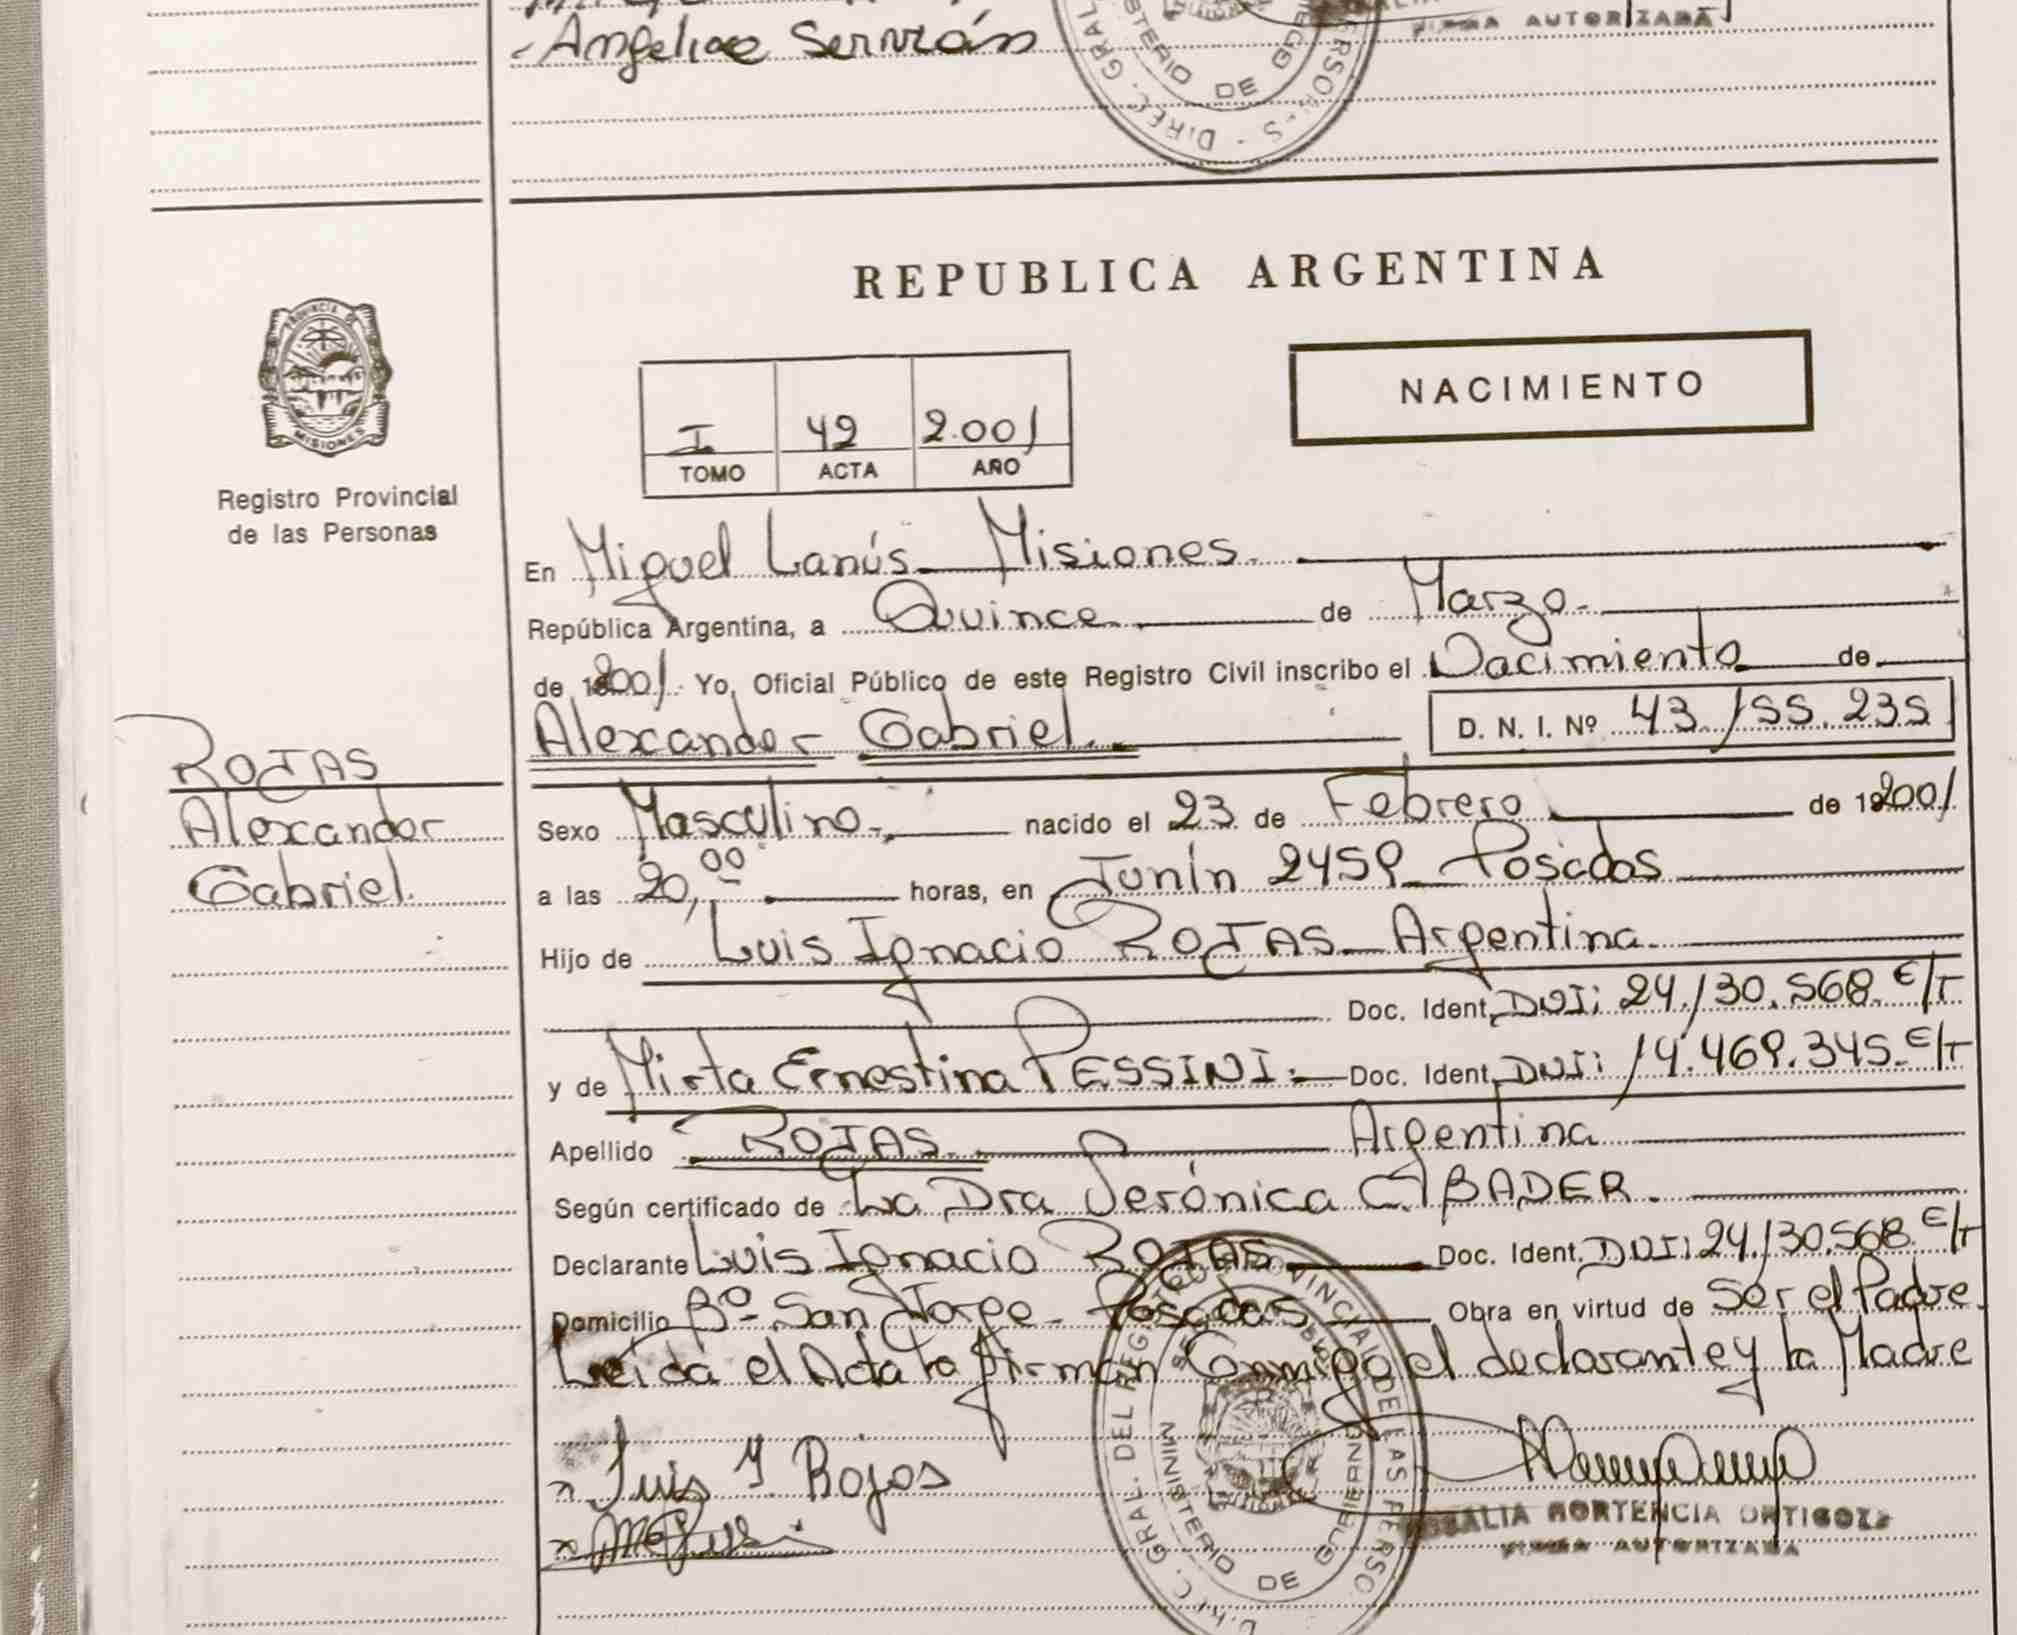 Angelica Servián
FIRMA AUTORIZADA
DIREC. GRAL.
MINISTERIO DE GOB
REPUBLICA ARGENTINA
PROVINCIA DE
MISIONES
Registro Provincial
de las Personas
NACIMIENTO
I 42 2.001
TOMO ACTA AÑO
En Miguel Lanús - Misiones.
República Argentina, a Quince de Marzo.
de 2001. Yo, Oficial Público de este Registro Civil inscribo el Nacimiento de
Alexander Gabriel. D. N. I. Nº 43.155.235
ROJAS
Alexander
Gabriel.
Sexo Masculino. nacido el 23 de Febrero de 2001
a las 20,00 horas, en Junín 2459 - Posadas
Hijo de Luis Ignacio ROJAS - Argentina.
Doc. Ident. DNI: 24.130.568. E/T
y de Mirta Ernestina PESSINI. Doc. Ident. DNI: 14.469.345. E/T
Apellido ROJAS. Argentina
Según certificado de La Dra Verónica C. ABADER.
Declarante Luis Ignacio ROJAS Doc. Ident. DNI: 24.130.568. E/T
Domicilio Bº San Jorge - Posadas Obra en virtud de ser el Padre.
Leída el Acta la firman Conmigo el declarante y la Madre
Luis I Rojas
ROSALIA HORTENCIA ORTIGOZA
FIRMA AUTORIZADA
GRAL. DEL REGISTRO PROVINCIAL DE LAS PERSO
MINISTERIO DE GOBIERNO